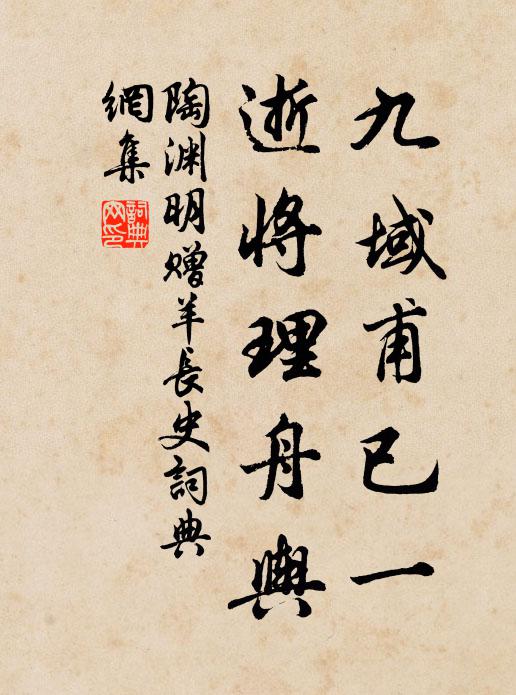 九域甫已一
逝將理舟輿
陶淵明贈羊長史詞典
網集
詞典
网印